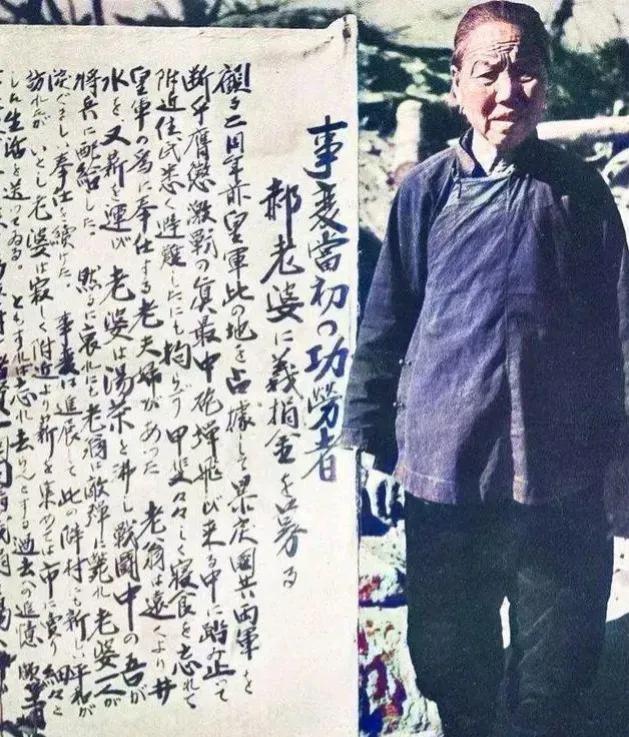 事変當初の功勞者
郝老婆に義捐金を募る
顧る二周年前皇軍此の地を占據して暴戻國共両軍を
断乎膺懲激戰の眞最中砲弾飛び来る中に踏み止って
附近住民悉く避難したにも拘らず甲斐々々しく寝食を忘れて
皇軍の為に奉仕する老夫婦があった 老翁は遠くより井
水を又薪を運び 老婆は湯茶を沸し戰鬪中の吾が
將兵に配給した。然るに哀れにも老翁は敵弾に斃れ老婆一人が
淚ぐましい奉仕を續けた。 事変は進展して此の陣村にも新しい平和が
訪れたが いとし老婆は寂しく附近より薪を集めては市に賣り細々と
した生活を送ってゐる。ともすれば忘れ去られんとする過去への追憶